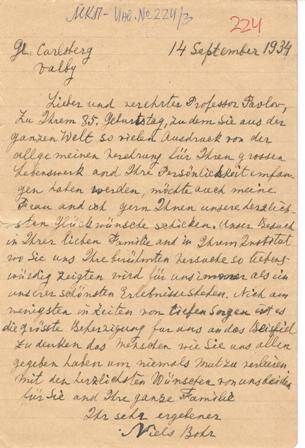 МКП - Инв. № 224/3
224
Gl. Carlsberg 14 September 1934
Valby
Lieber und verehrter Professor Pavlov,
Zu Ihrem 85. Geburtstag, zu dem Sie aus der
ganzen Welt so vielen Ausdruck von der
allgemeinen Verehrung für Ihren grossen
Lebenswerk and Ihre Persönlichkeit empfan
gen haben werden, möchte auch meine
Frau and ich gern Ihnen unsere herzlich
sten Glückwünsche schicken. Unser Besuch
in Ihrer lieben Familie and in Ihrem Institut
wo Sie uns Ihre berühmten Versuche so liebens
würdig zeigten wird für uns immer als ein
unserer schönsten Erlebnisse stehen. Nich am
wenigsten in Zeiten von tiefen Sorgen ist es
die grösste Beherzigung für uns an das Beispiel
zu denken das Menschen wie Sie uns allen
gegeben haben um niemals Mut zu verlieren.
mit den herzlichsten Wünschen von uns beiden
für Sie and Ihre ganze Familie
Ihr sehr ergebener
Niels Bohr